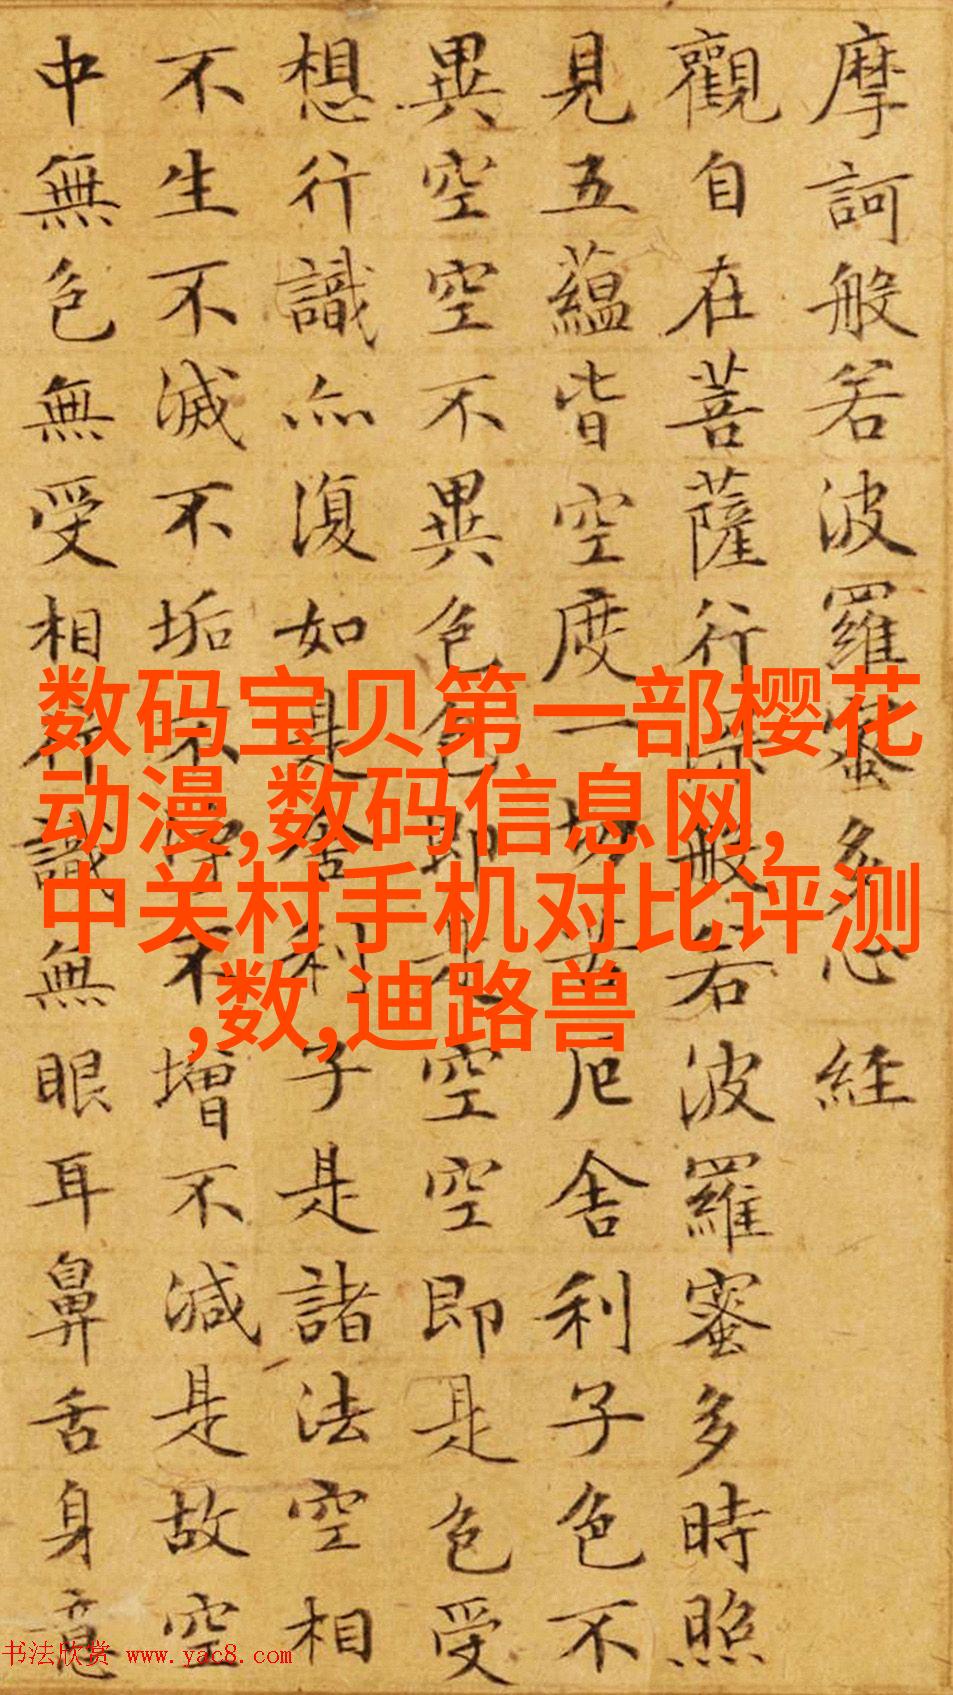 摩訶般若波羅蜜多心經
觀自在菩薩行深般若波羅蜜多時照
見五蘊皆空度一切苦厄舍利子色不
異空空不異色色即是空空即是色受
想行識亦復如是舍利子是諸法空相
不生不滅不垢不淨不增不減是故空
中無色無受相行識無眼耳鼻舌身意
数码宝贝第一部樱花
动漫,数码信息网,
中关村手机对比评测
,数,迪路兽
书法欣赏 www.yac8.com